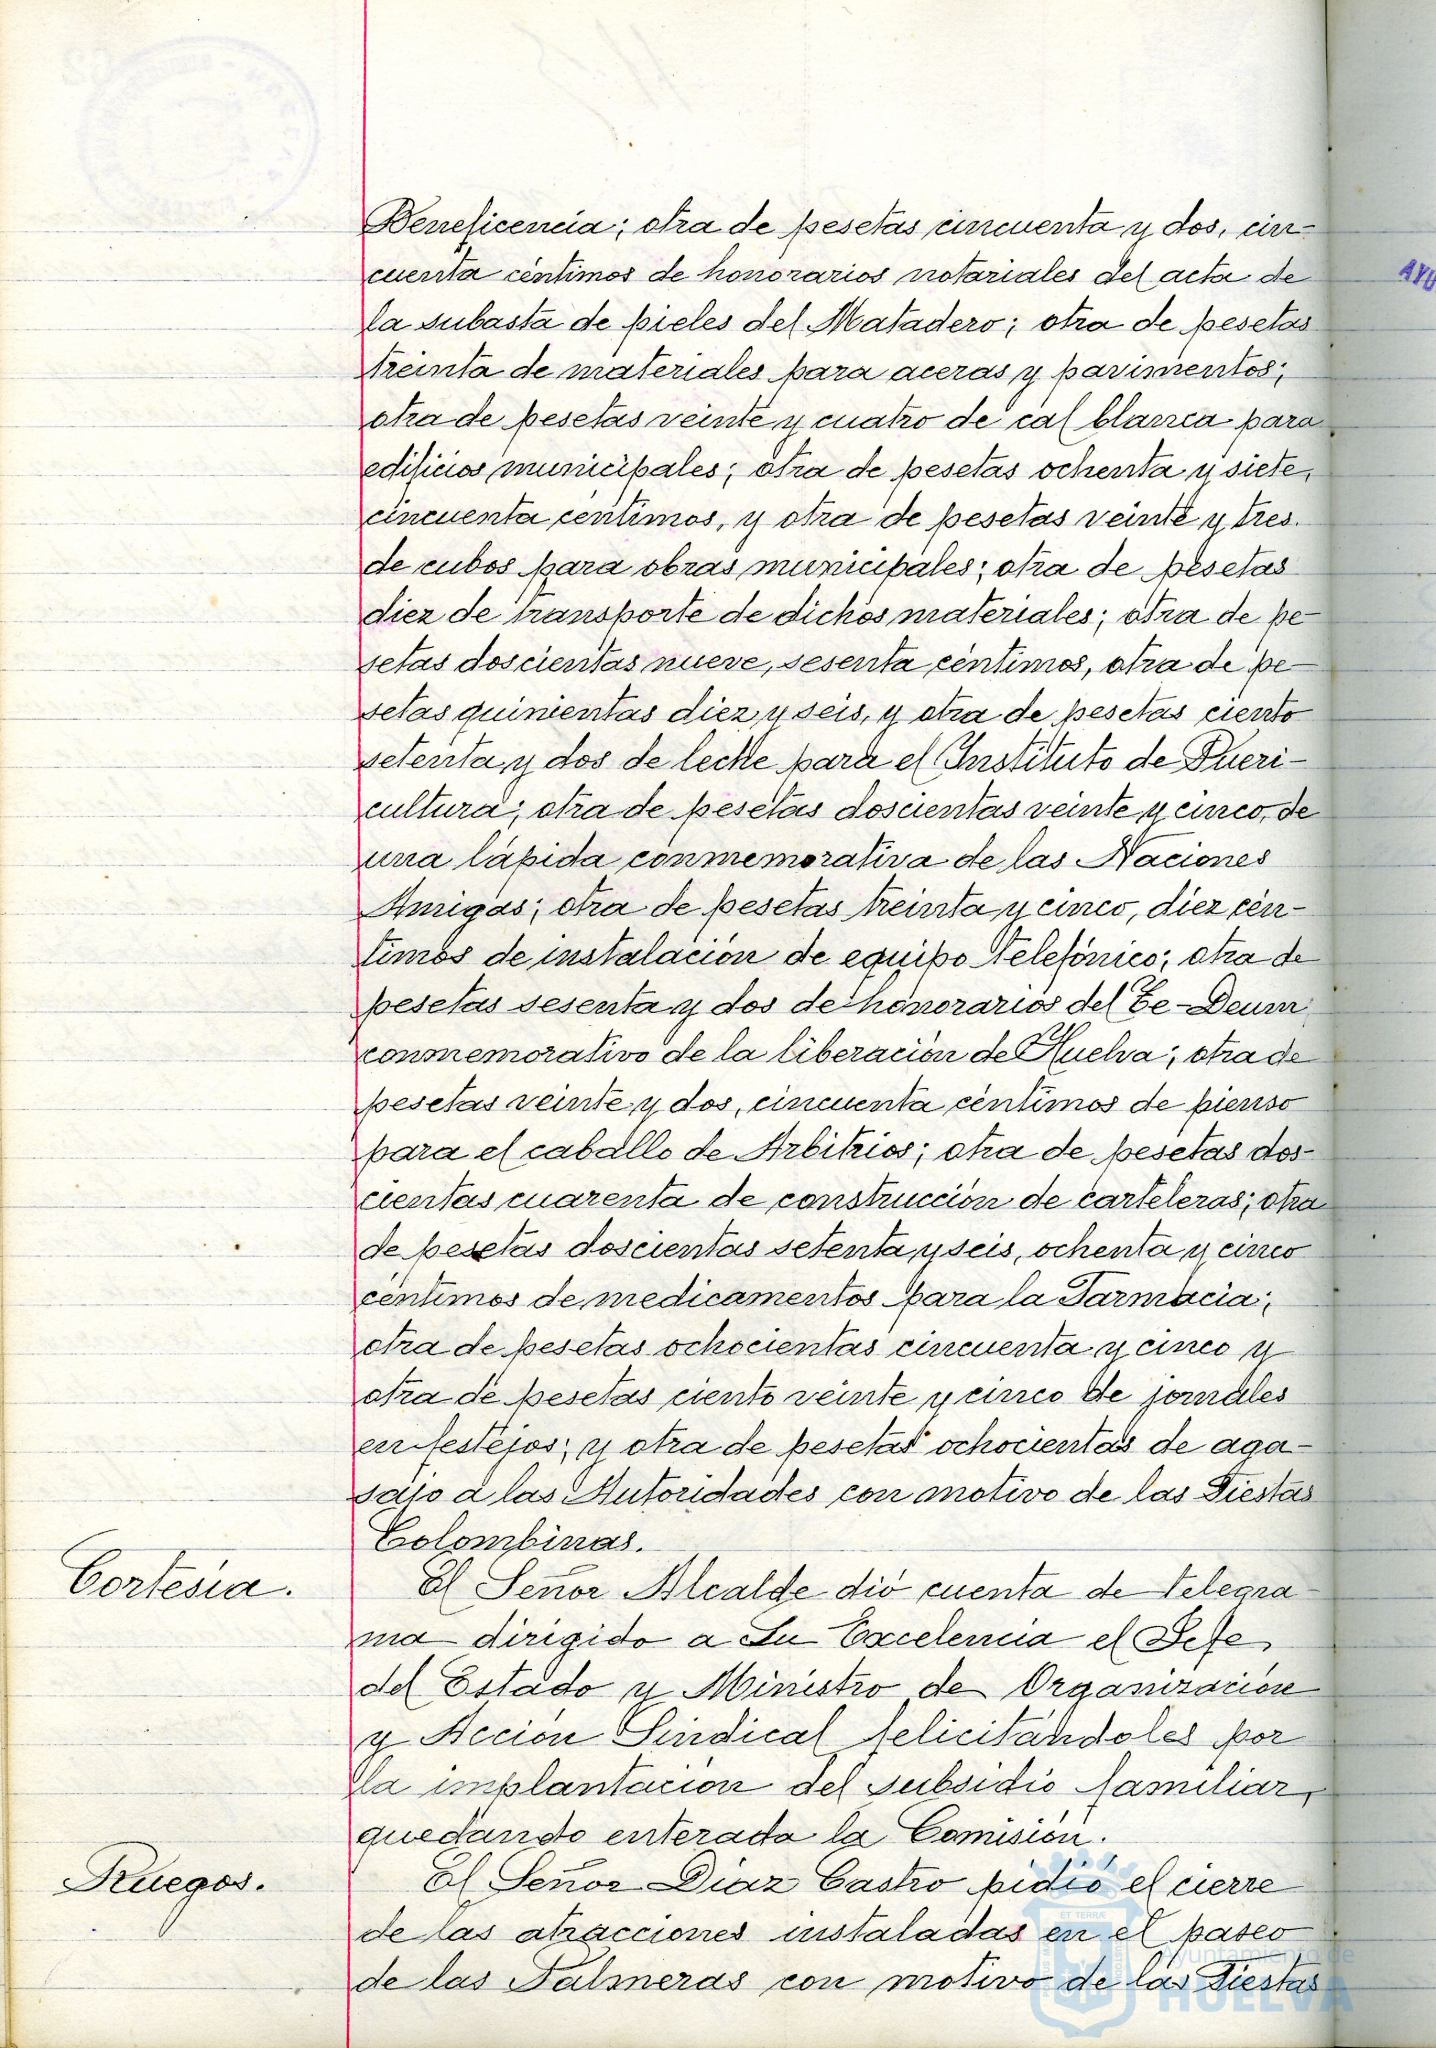 Beneficencia; otra de pesetas cincuenta y dos, cin-
cuenta céntimos de honorarios notariales del acta de
la subasta de pieles del Matadero; otra de pesetas
treinta de materiales para aceras y pavimentos;
otra de pesetas veinte y cuatro de cal blanca para
edificios municipales; otra de pesetas ochenta y siete,
cincuenta centimos, y otra de pesetas veinte y tres.
de cubos para obras municipales; otra de pesetas
diez de transporte de dichos materiales; otra de pe-
setas doscientas nueve, sesenta céntimos, otra de pe-
setas quinientas diez y seis, y otra de pesetas ciento
setenta y dos de leche para el Instituto de Pueri-
cultura; otra de pesetas doscientas veinte y cinco, de
una lápida conmemorativa de las Naciones
Amigas; otra de pesetas treinta y cinco, diez cén-
timos de instalación de equipo telefónico; otra de
pesetas sesenta y dos de honorarios del Te-Deum
conmemorativo de la liberación de Huelva; otra de
pesetas veinte y dos, cincuenta céntimos de pienso
para el caballo de Arbitrios; otra de pesetas dos-
cientas cuarenta de construcción de carteleras; otra
de pesetas doscientas setenta y seis, ochenta y cinco
céntimos de medicamentos para la Farmacia;
otra de pesetas ochocientas cincuenta y cinco y
otra de pesetas ciento veinte y cinco de jornales
en festejos; y otra de pesetas ochocientas de aga-
sajo a las Autoridades con motivo de las Fiestas
Colombinas.
Cortesía.
El Señor Alcalde dió cuenta de telegra-
ma dirigido a Su Excelencia el Jefe
del Estado y Ministro de Organización
y Acción Sindical felicitándoles por
la implantación del subsidio familiar,
quedando enterada la Comisión.
Ruegos.
El Señor Díaz Castro pidió el cierre
de las atracciones instaladas en el paseo
de las Palmeras con motivo de las Fiestas
AYU
Ayuntamiento de
HUELVA